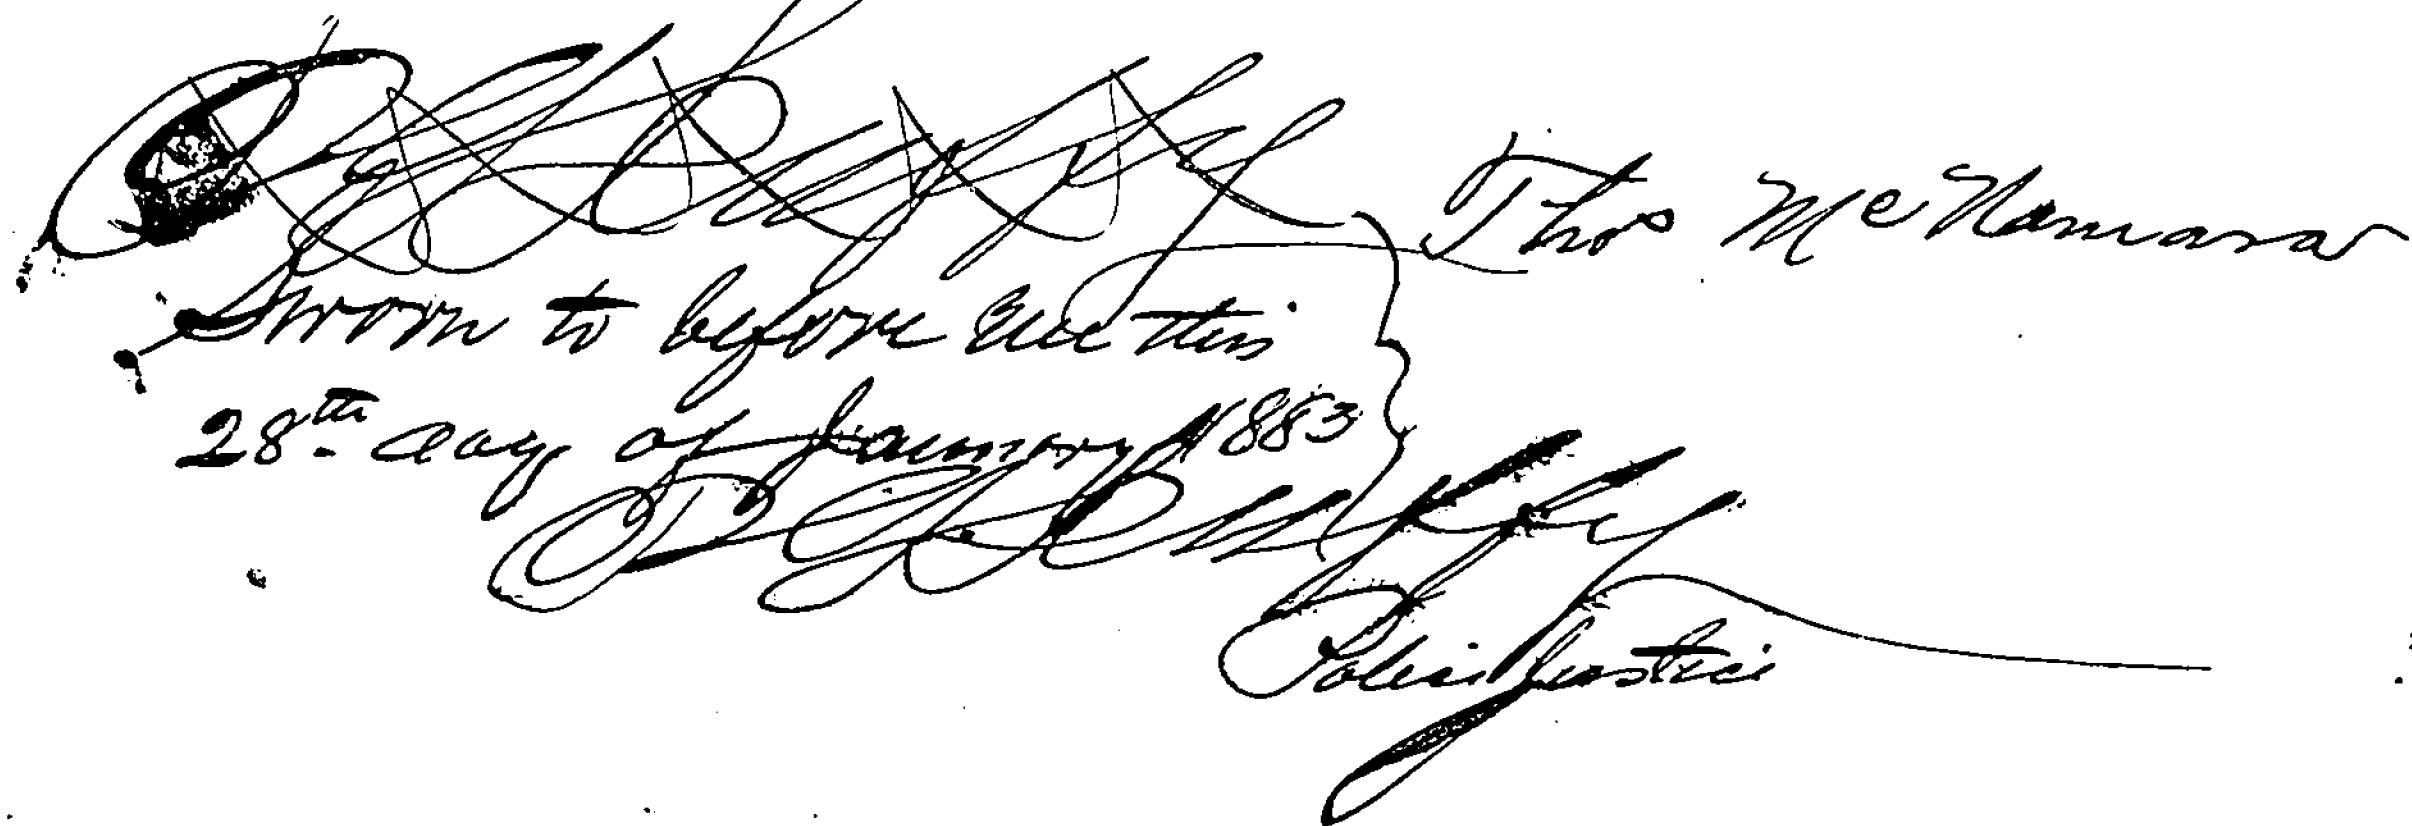 Thos McNamara
Sworn to before me this
28th day of January 1883
Police Justice